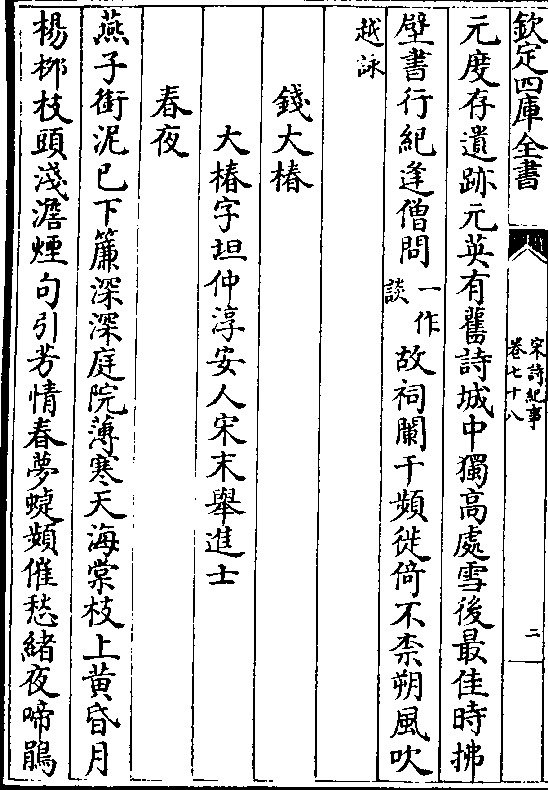 欽定四庫全書
宋詩紀事
卷七十八
二
元度存遺跡元英有舊詩城中獨高處雪後最佳時拂
壁書行紀逢僧問一作談故祠闌干頻徙倚不柰朔風吹
越詠
錢大椿
大椿字坦仲淳安人宋末舉進士
春夜
燕子銜泥已下簾深深庭院薄寒天海棠枝上黃昏月
楊栁枝頭淺澹煙句引芳情春夢蜨頻催愁緒夜啼鵑